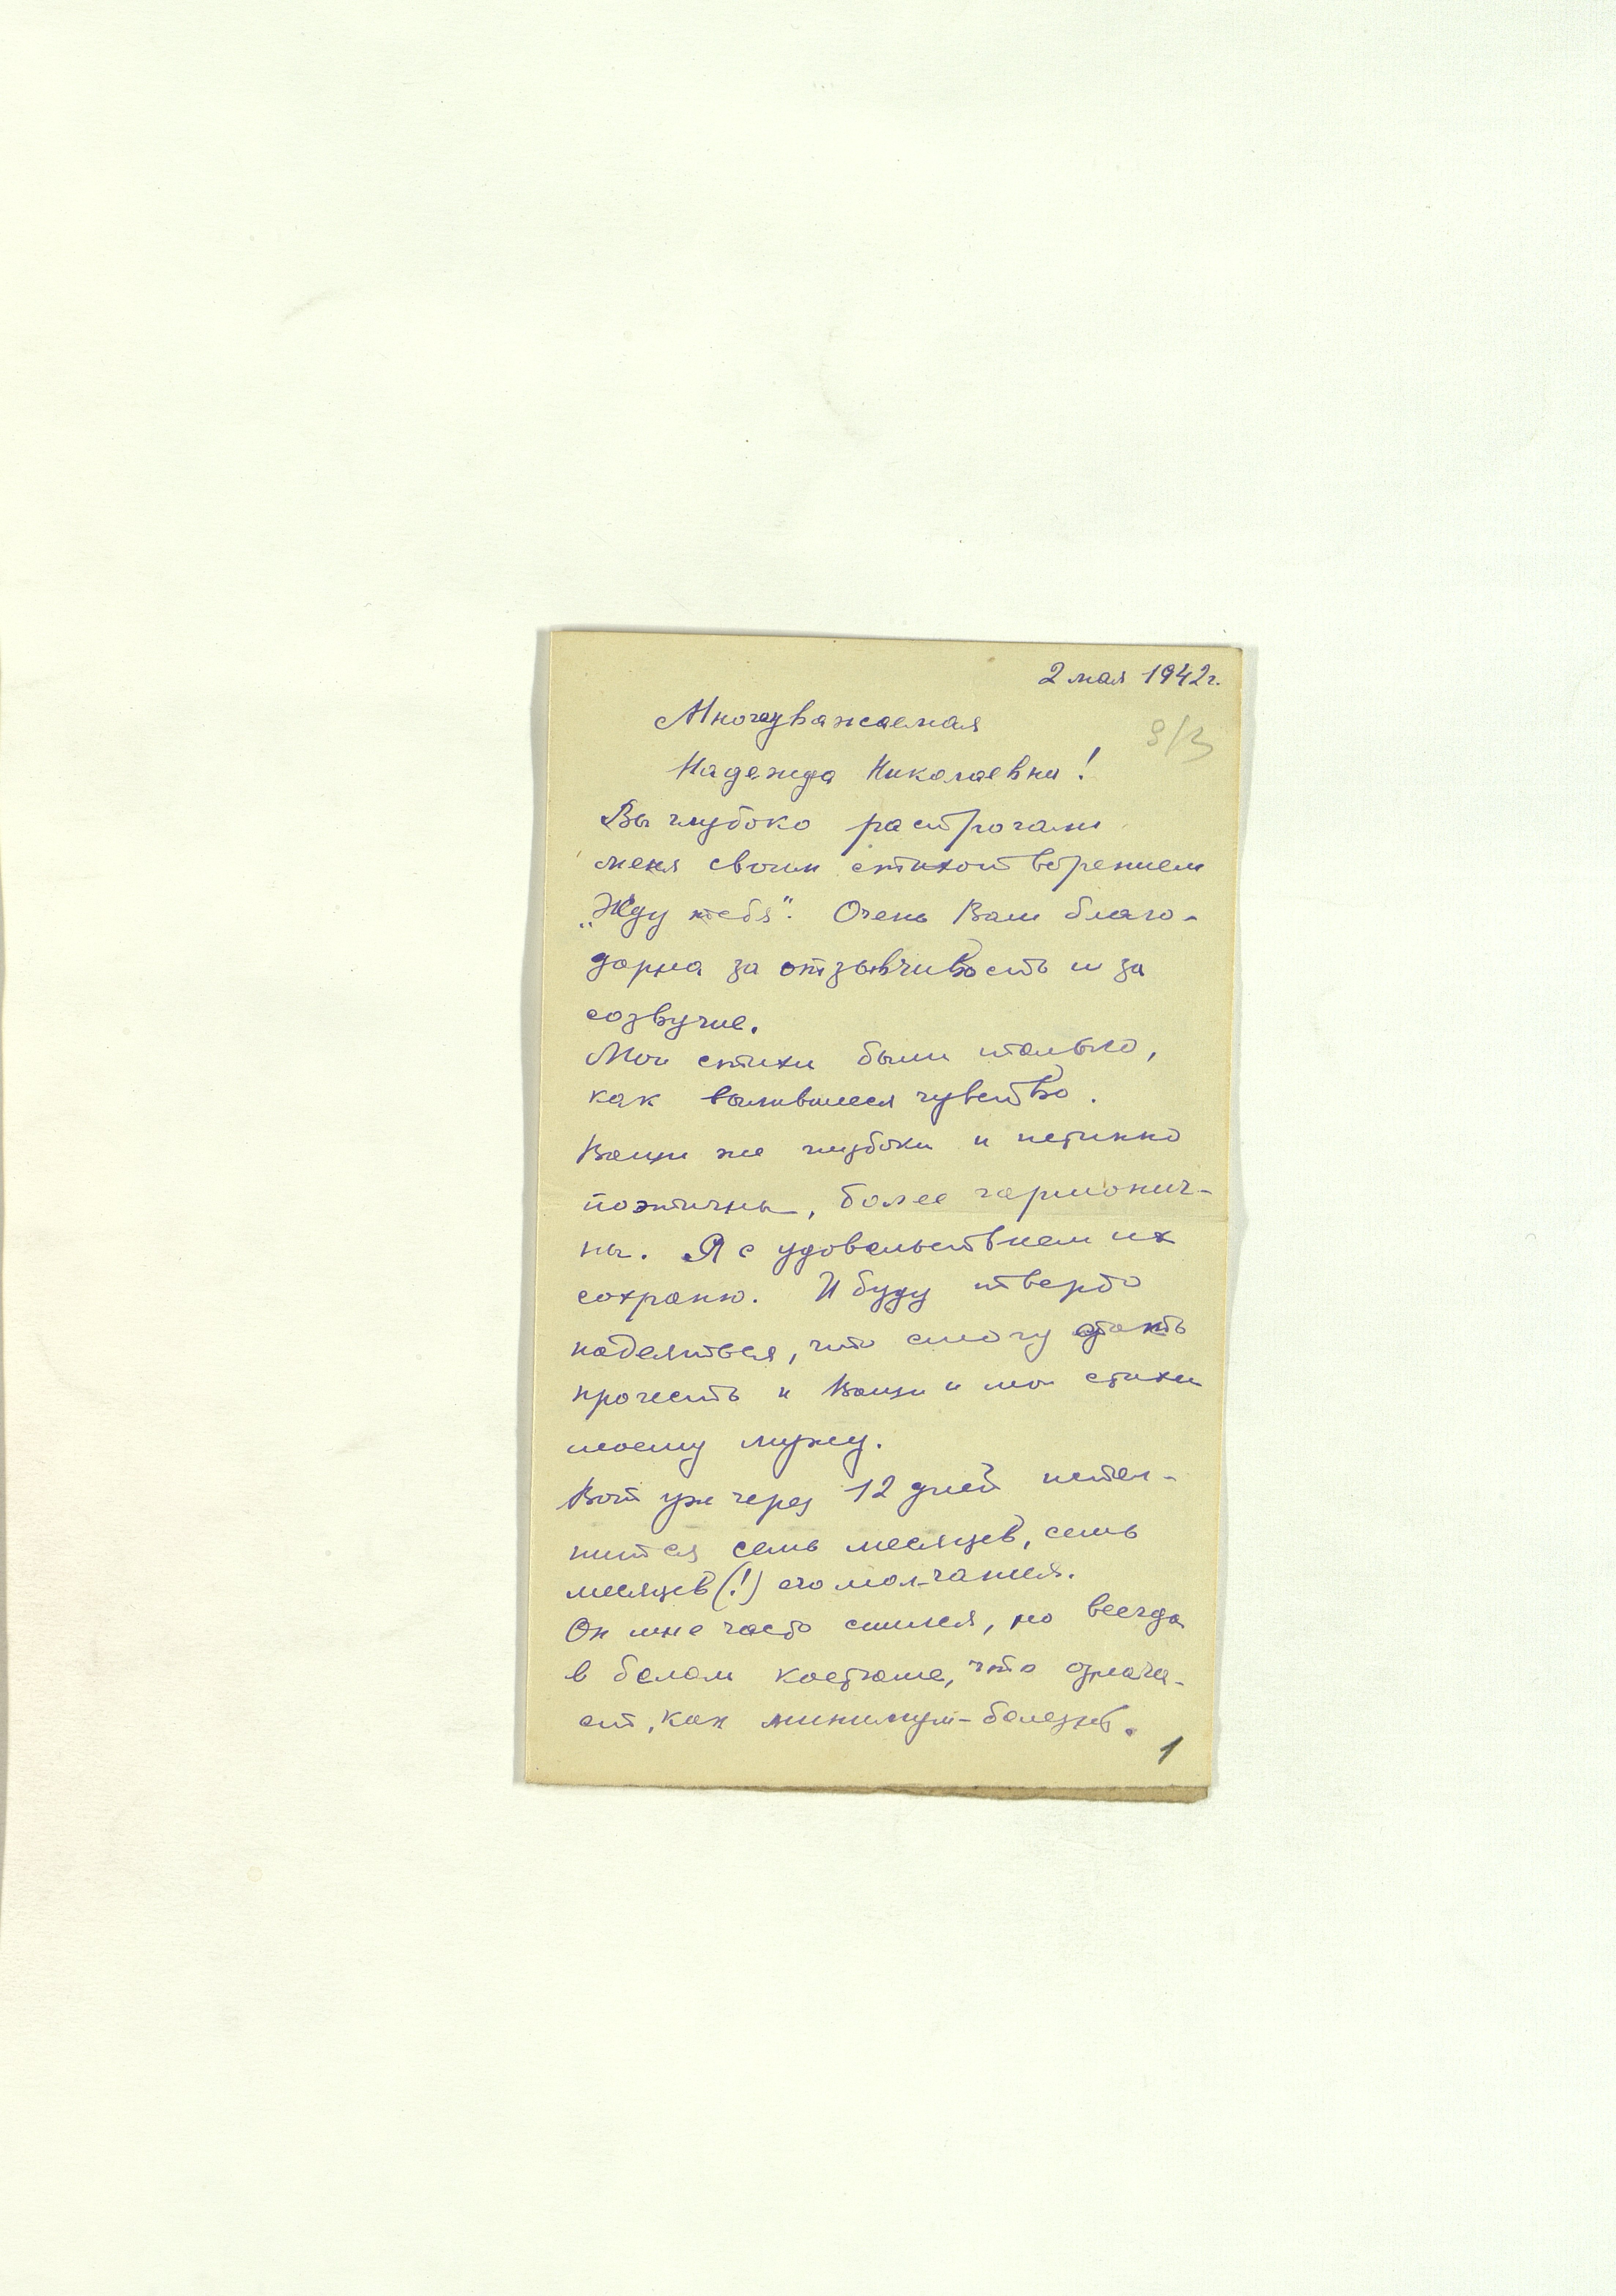 2 мая 1942г.
Многоуважаемая
Надежда Николаевна!
Вы глубоко растрогали
меня своим стихотворением
„Жду тебя“. Очень Вам благо-
дарна за отзывчивость и за
созвучие.
Мои стихи были только,
как вылившееся чувство.
Ваши же глубоки и истинно
поэтичны, более гармонич-
ны. Я с удовольствием их
сохраню. И буду твердо
надеяться, что смогу
прочесть и Ваши и мои стихи
моему мужу.
Вот уж через 12 дней испол-
нится семь месяцев, семь
месяцев (!) его молчания.
Он мне часто снился, но всегда
в белом костюме, что означа-
ет, как минимум - болезнь.
1